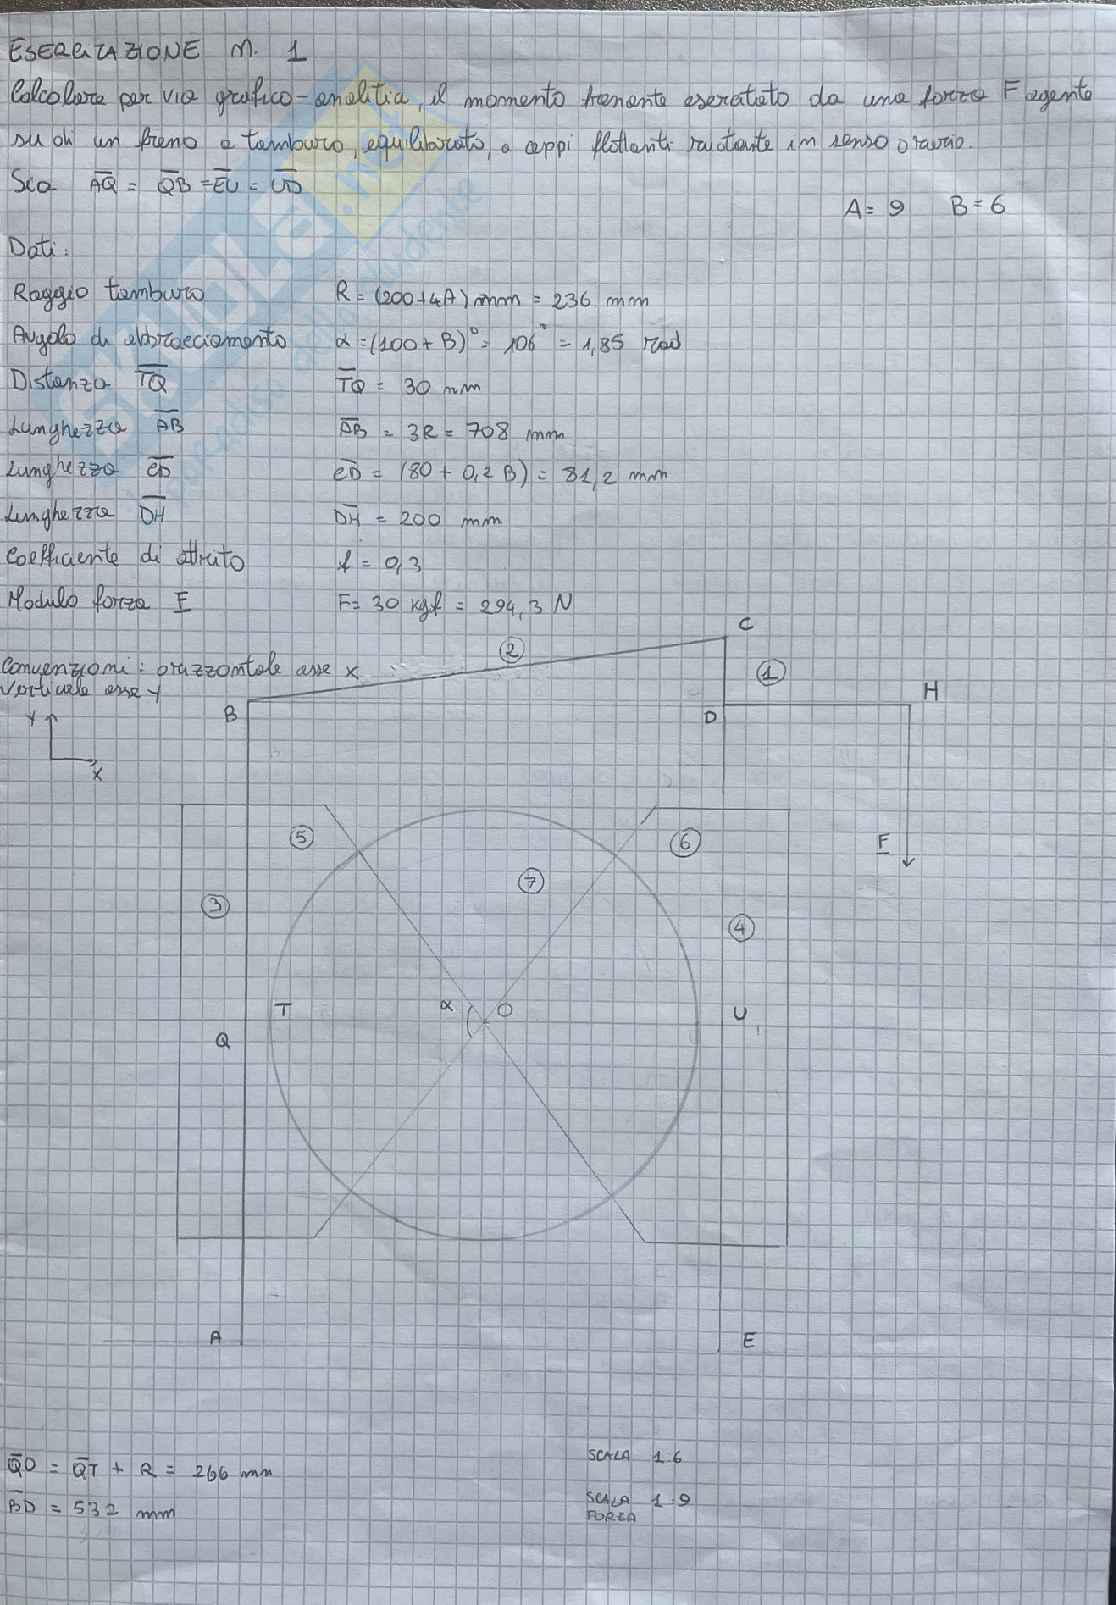 ESERCITAZIONE M. 1
Calcolare per via grafico-analitica, il momento frenante esercitato da una forza F agente
su di un freno a tamburo, equilibrato, a ceppi flottanti ruotante in senso orario.
Sia AQ = QB = EU = UD
A= 9 B= 6
Dati:
Raggio tamburo R = (200+4A) mm = 236 mm
Angolo di abbracciamento α = (100 + B)° = 106° = 1,85 rad
Distanza TQ TQ = 30 mm
Lunghezza AB AB = 3R = 708 mm
Lunghezza CD CD = (80 + 0,2 B) = 81,2 mm
Lunghezza DH DH = 200 mm
Coefficiente di attrito f = 0,3
Modulo forza F F= 30 kgf = 294,3 N
Convenzioni: orizzontale asse x
verticale asse y
Y
X
C
2
1
B
D
H
5
6
F
7
3
4
T
α
O
U
Q
A
E
QO = QT + R = 266 mm
BD = 532 mm
SCALA 1:6
SCALA 1:9
FORZA
SKUOLA.net